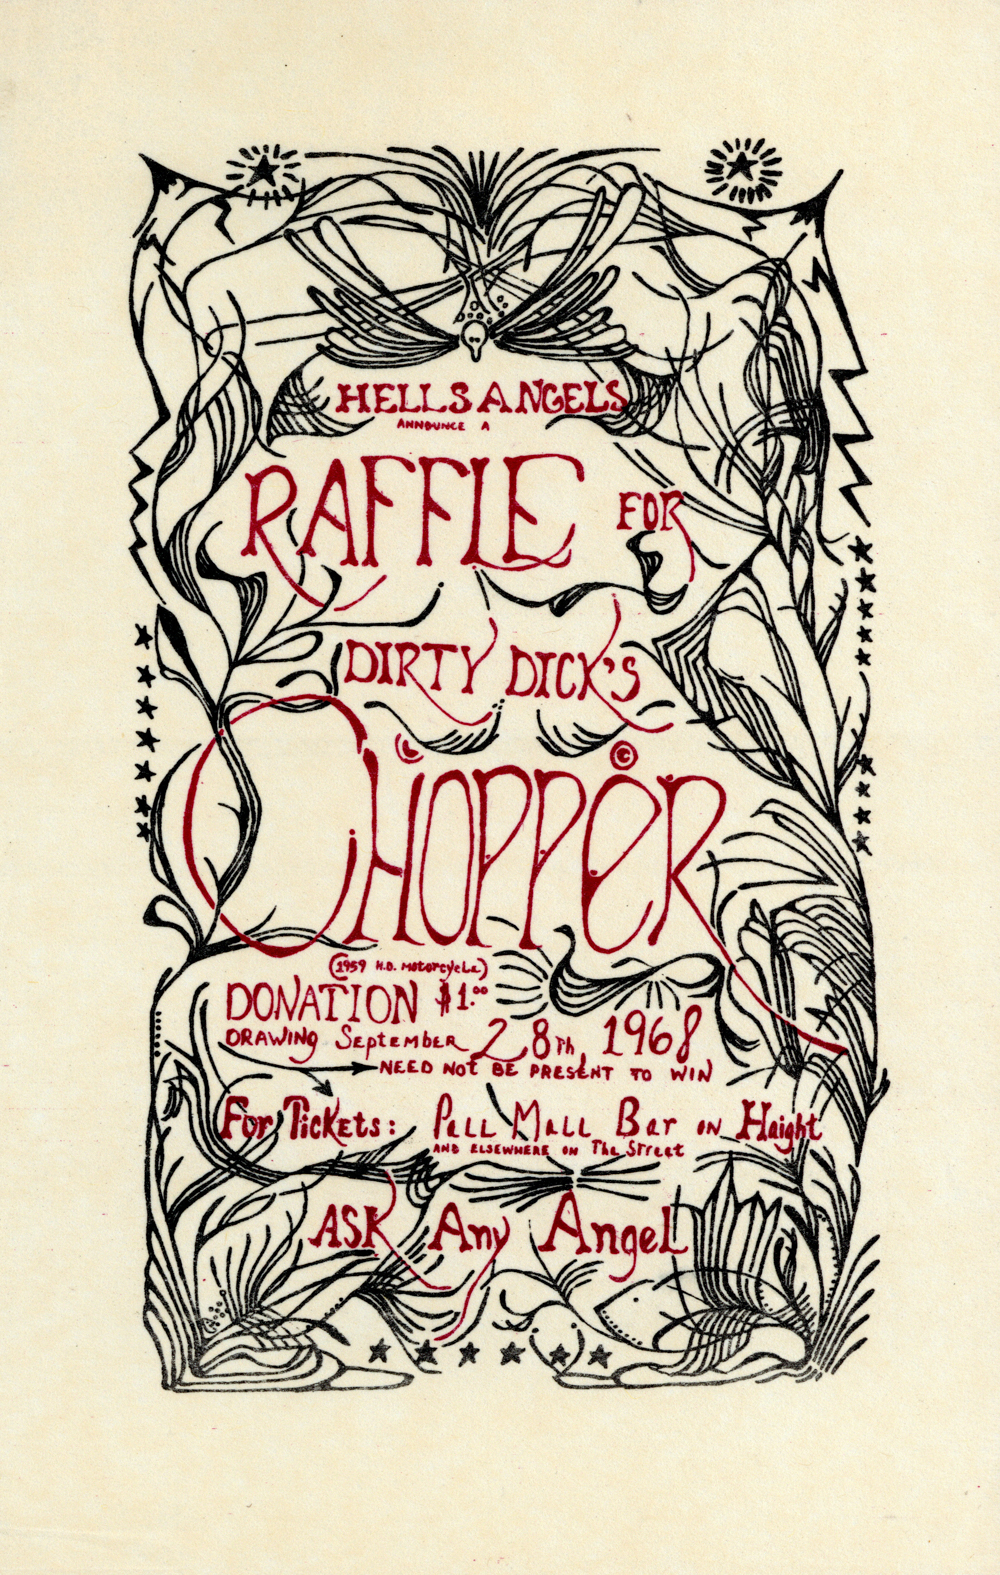 HELLS ANGELS
ANNOUNCE A
RAFFLE FOR
DIRTY DICK'S
CHOPPER
(1959 H.D. MOTORCYCLE)
DONATION $1.00
DRAWING September 28Th, 1968
NEED NOT BE PRESENT TO WIN
For Tickets: Pall Mall Bar on Haight
AND ELSEWHERE ON The Street
ASK Any Angel